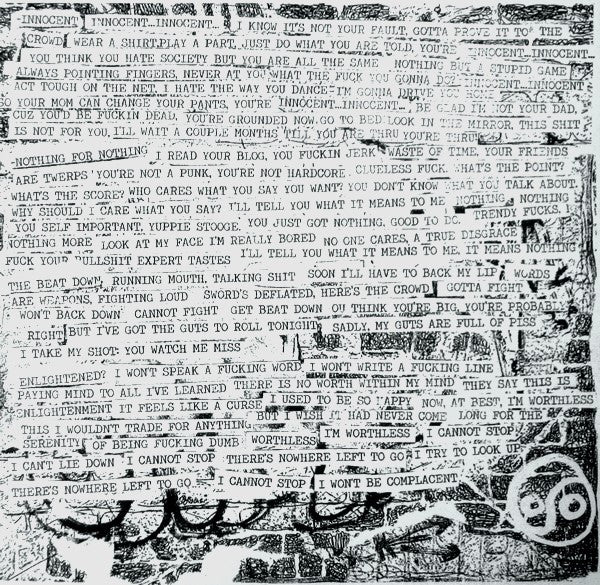 -INNOCENT INNOCENT...INNOCENT... I KNOW IT'S NOT YOUR FAULT, GOTTA PROVE IT TO THE
CROWD WEAR A SHIRT, PLAY A PART, JUST DO WHAT YOU ARE TOLD, YOU'RE INNOCENT...INNOCENT...
YOU THINK YOU HATE SOCIETY BUT YOU ARE ALL THE SAME NOTHING BUT A STUPID GAME
ALWAYS POINTING FINGERS, NEVER AT YOU WHAT THE FUCK YOU GONNA DO? INNOCENT...INNOCENT
ACT TOUGH ON THE NET I HATE THE WAY YOU DANCE I'M GONNA DRIVE YOU
SO YOUR MOM CAN CHANGE YOUR PANTS, YOU'RE INNOCENT...INNOCENT... BE GLAD I'M NOT YOUR DAD,
CUZ YOU'D BE FUCKIN DEAD, YOU'RE GROUNDED NOW, GO TO BED LOOK IN THE MIRROR, THIS SHIT
IS NOT FOR YOU, I'LL WAIT A COUPLE MONTHS TILL YOU ARE THRU YOU'RE THRU
-NOTHING FOR NOTHING I READ YOUR BLOG, YOU FUCKIN JERK WASTE OF TIME, YOUR FRIENDS
ARE TWERPS YOU'RE NOT A PUNK, YOU'RE NOT HARDCORE CLUELESS FUCK, WHAT'S THE POINT?
WHAT'S THE SCORE? WHO CARES WHAT YOU SAY YOU WANT? YOU DON'T KNOW WHAT YOU TALK ABOUT.
WHY SHOULD I CARE WHAT YOU SAY? I'LL TELL YOU WHAT IT MEANS TO ME NOTHING, NOTHING
YOU SELF IMPORTANT, YUPPIE STOOGE, YOU JUST GOT NOTHING, GOOD TO DO. TRENDY FUCKS,
NOTHING MORE LOOK AT MY FACE I'M REALLY BORED NO ONE CARES, A TRUE DISGRACE
FUCK YOUR BULLSHIT EXPERT TASTES I'LL TELL YOU WHAT IT MEANS TO ME, IT MEANS NOTHING
THE BEAT DOWN RUNNING MOUTH, TALKING SHIT SOON I'LL HAVE TO BACK MY LIP WORDS
ARE WEAPONS, FIGHTING LOUD SWORD'S DEFLATED, HERE'S THE CROWD GOTTA FIGHT
WON'T BACK DOWN CANNOT FIGHT GET BEAT DOWN OU THINK YOU'RE BIG, YOU'RE PROBABL
RIGHT BUT I'VE GOT THE GUTS TO ROLL TONIGHT SADLY, MY GUTS ARE FULL OF PISS
I TAKE MY SHOT YOU WATCH ME MISS
ENLIGHTENED? I WON'T SPEAK A FUCKING WORD I WON'T WRITE A FUCKING LINE
PAYING MIND TO ALL I'VE LEARNED THERE IS NO WORTH WITHIN MY MIND THEY SAY THIS IS
ENLIGHTENMENT IT FEELS LIKE A CURSE I USED TO BE SO HAPPY NOW, AT BEST, I'M WORTHLESS
THIS I WOULDN'T TRADE FOR ANYTHING BUT I WISH IT HAD NEVER COME LONG FOR THE
SERENITY OF BEING FUCKING DUMB WORTHLESS I'M WORTHLESS I CANNOT STOP
I CAN'T LIE DOWN I CANNOT STOP THERE'S NOWHERE LEFT TO GO I TRY TO LOOK UP
THERE'S NOWHERE LEFT TO GO I CANNOT STOP I WON'T BE COMPLACENT